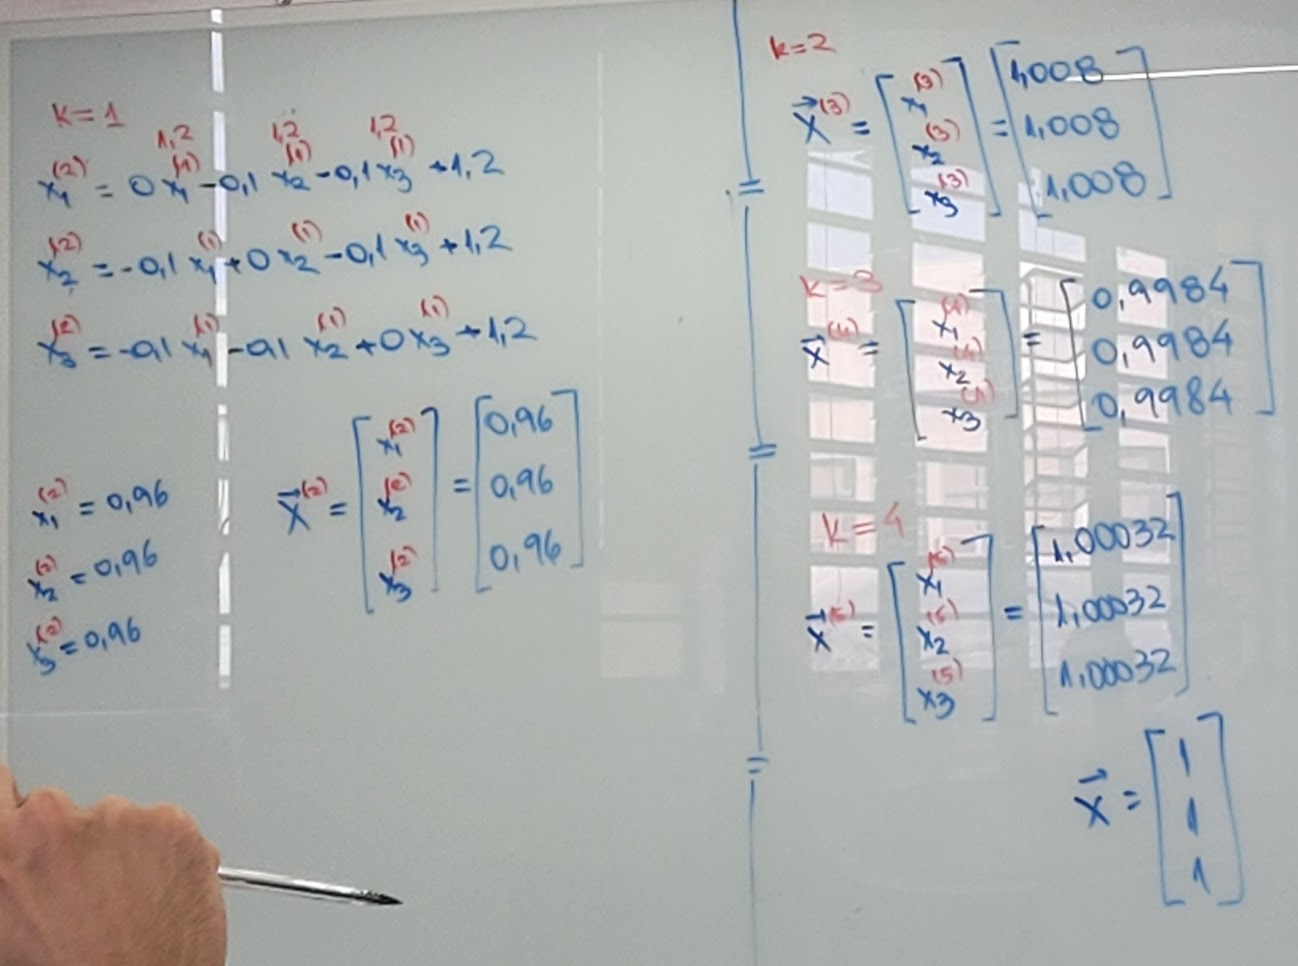 k=1
1,2 1,2 1,2
x₁⁽²⁾ = 0x₁⁽¹⁾ - 0,1 x₂⁽¹⁾ - 0,1x₃⁽¹⁾ + 1,2
x₂⁽²⁾ = -0,1 x₁⁽¹⁾ + 0x₂⁽¹⁾ - 0,1 x₃⁽¹⁾ + 1,2
x₃⁽²⁾ = -0,1 x₁⁽¹⁾ - 0,1 x₂⁽¹⁾ + 0x₃⁽¹⁾ + 1,2
x₁⁽²⁾ = 0,96
x₂⁽²⁾ = 0,96
x₃⁽²⁾ = 0,96
x⃗⁽²⁾ = [x₁⁽²⁾ x₂⁽²⁾ x₃⁽²⁾] = [0,96 0,96 0,96]
k=2
x⃗⁽³⁾ = [x₁⁽³⁾ x₂⁽³⁾ x₃⁽³⁾] = [1,008 1,008 1,008]
k=3
x⃗⁽⁴⁾ = [x₁⁽⁴⁾ x₂⁽⁴⁾ x₃⁽⁴⁾] = [0,9984 0,9984 0,9984]
k=4
x⃗⁽⁵⁾ = [x₁⁽⁵⁾ x₂⁽⁵⁾ x₃⁽⁵⁾] = [1,00032 1,00032 1,00032]
x⃗ = [1 1 1]